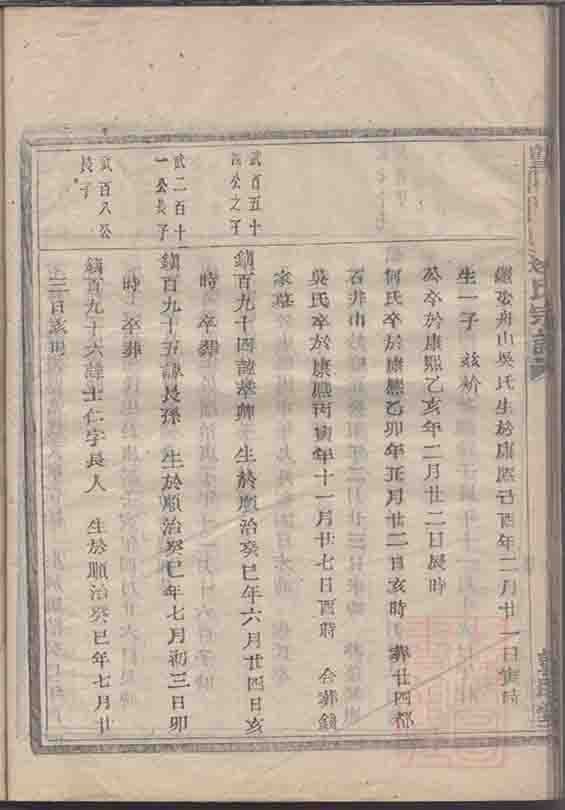 生於康熙己酉年二月廿一日
生一子
公卒於康熙乙亥年二月廿二日辰時
何氏卒於康熙乙卯年正月廿二日亥時 葬廿四都
石井山
吳氏卒於康熙丙寅年十一月廿七日酉時 合葬鎮
家墓
武百五十
公之子
鎮百九十四諱萃卿 生於順治癸巳年六月廿四日亥
時 卒葬
武二百十
一公長子
鎮百九十五諱長孫 生於順治癸巳年七月初三日卯
時 卒葬
武百八公
長子
鎮百九十六諱士仁字長人 生於順治癸巳年七月廿
二日亥時
氏宗譜